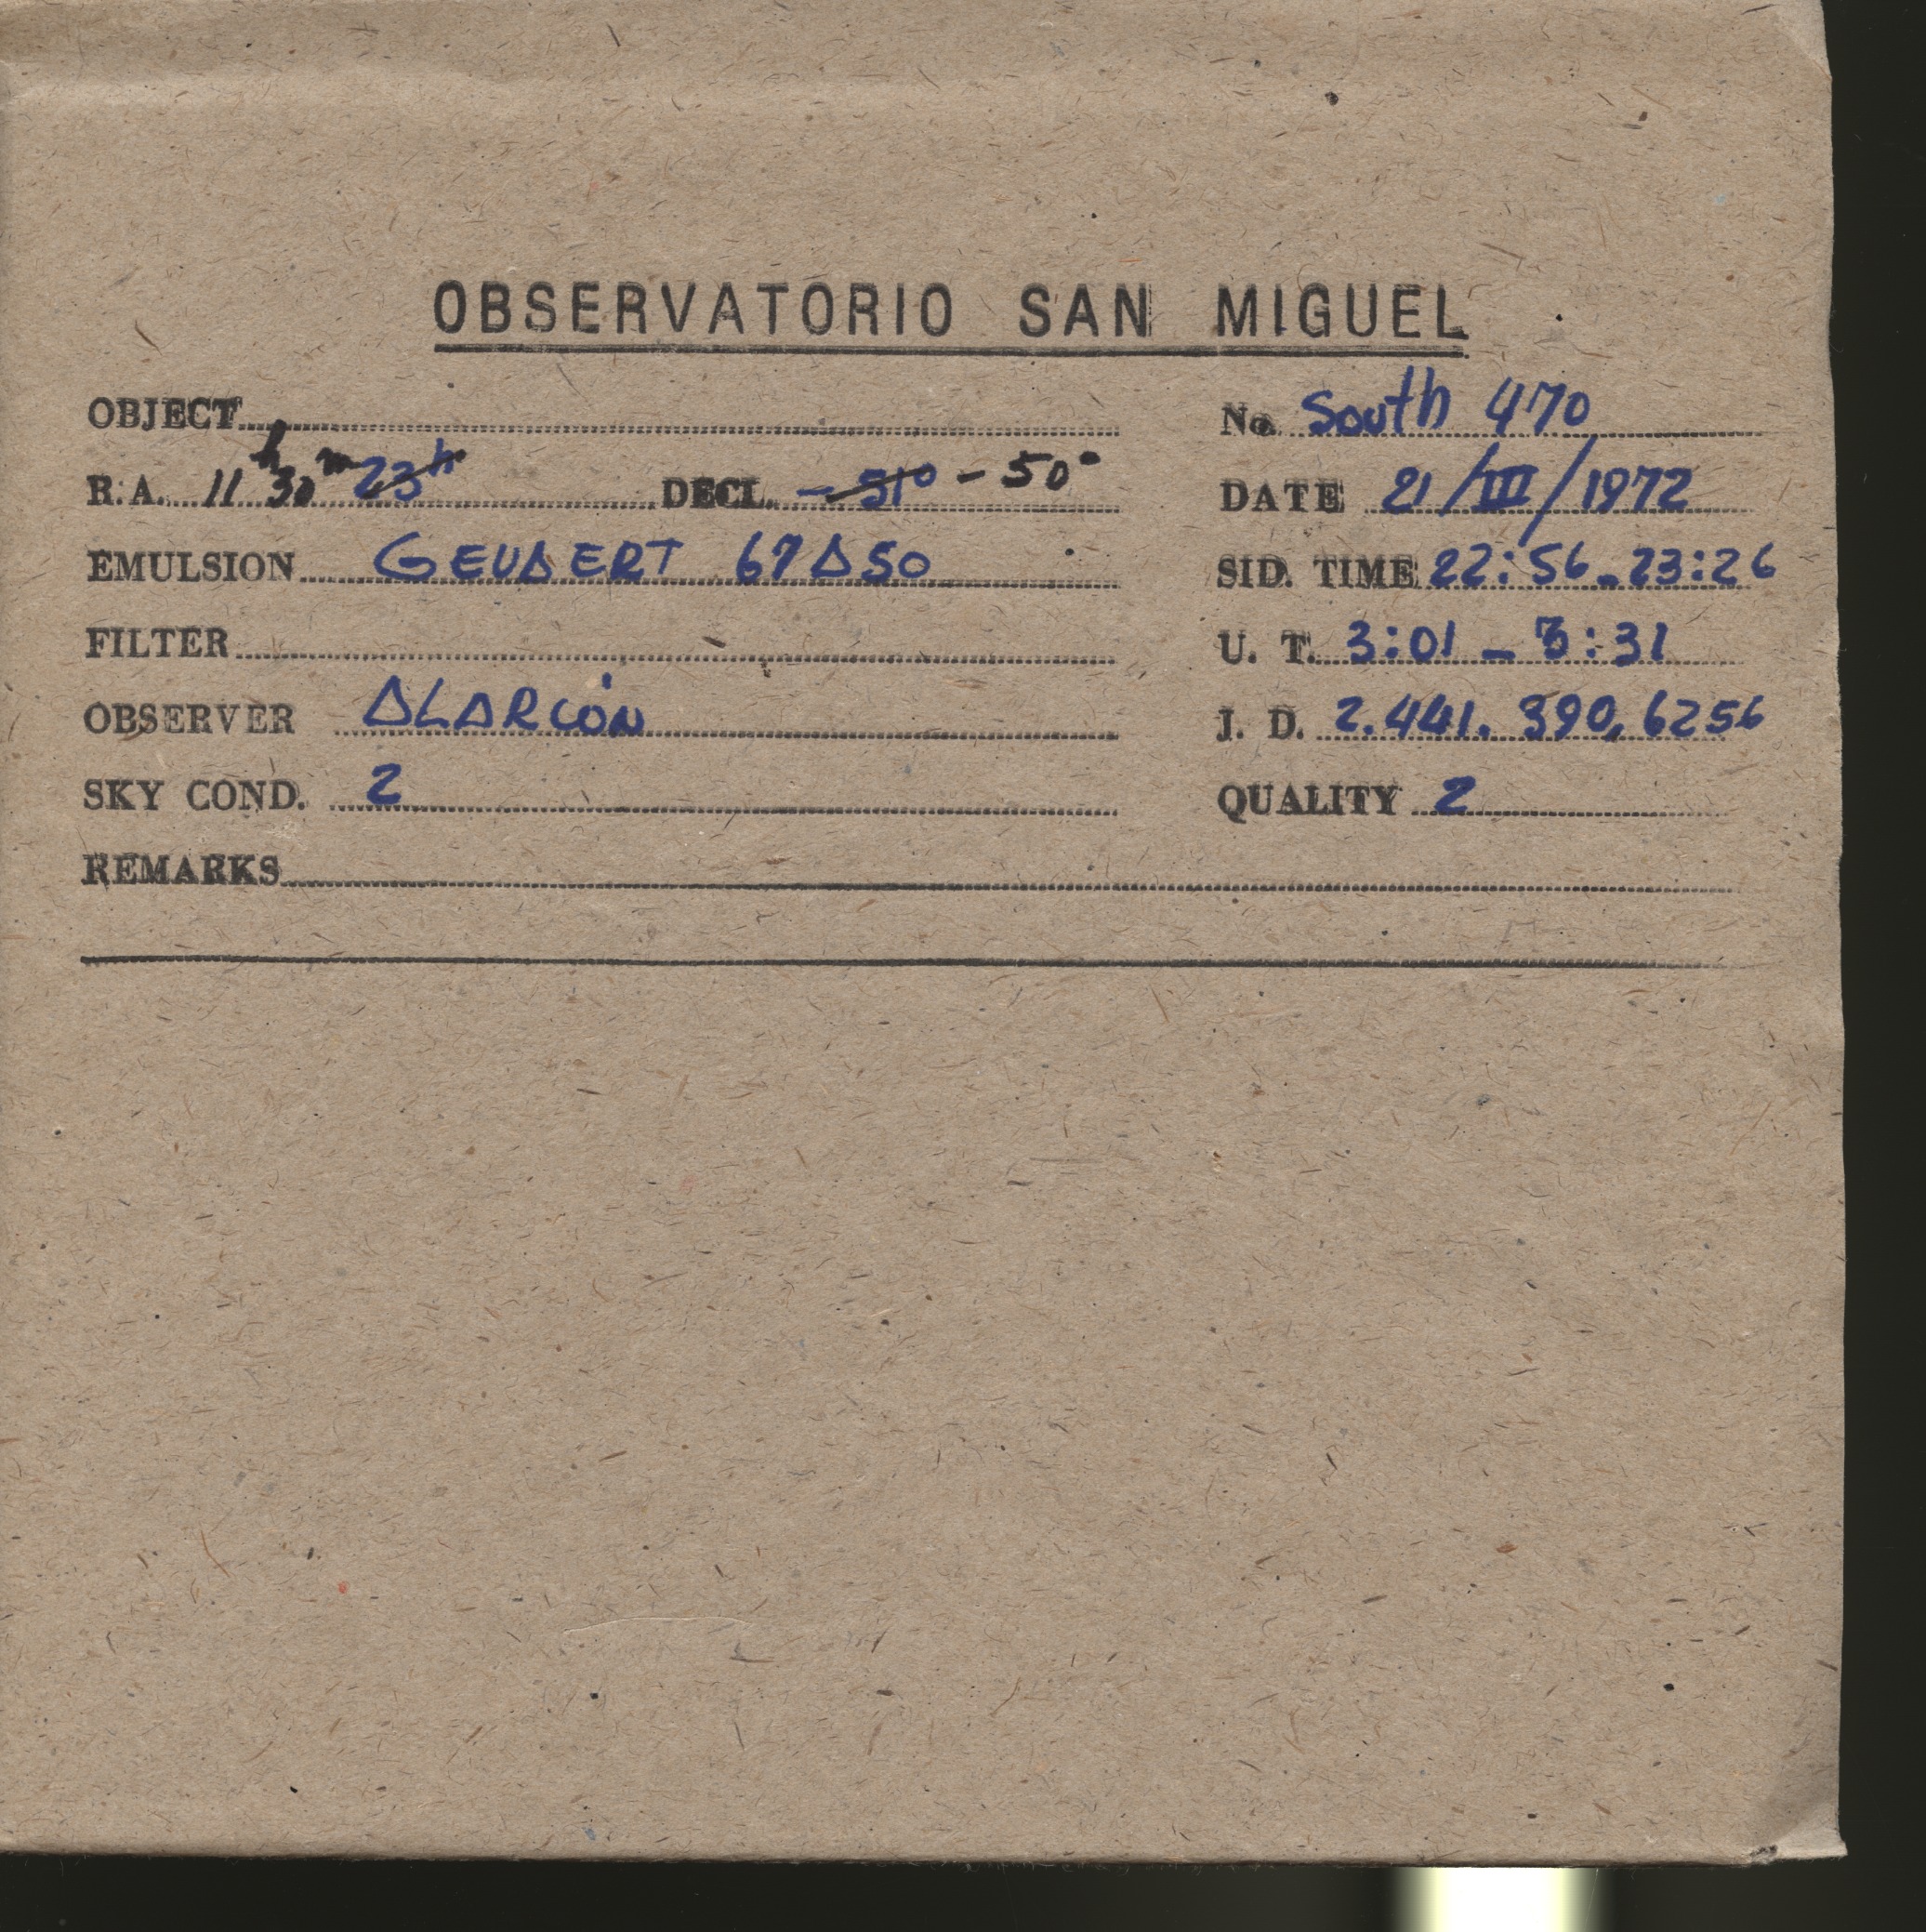 OBSERVATORIO SAN MIGUEL
OBJECT
No. South 470
R.A. 11h 30m 23h DECL. -51° -50°
DATE 21/III/1972
EMULSION GEVAERT 67A50
SID. TIME 22:56-23:26
FILTER
U. T. 3:01 - 3:31
OBSERVER ALARCÓN
J. D. 2.441.390,6256
SKY COND. 2
QUALITY 2
REMARKS